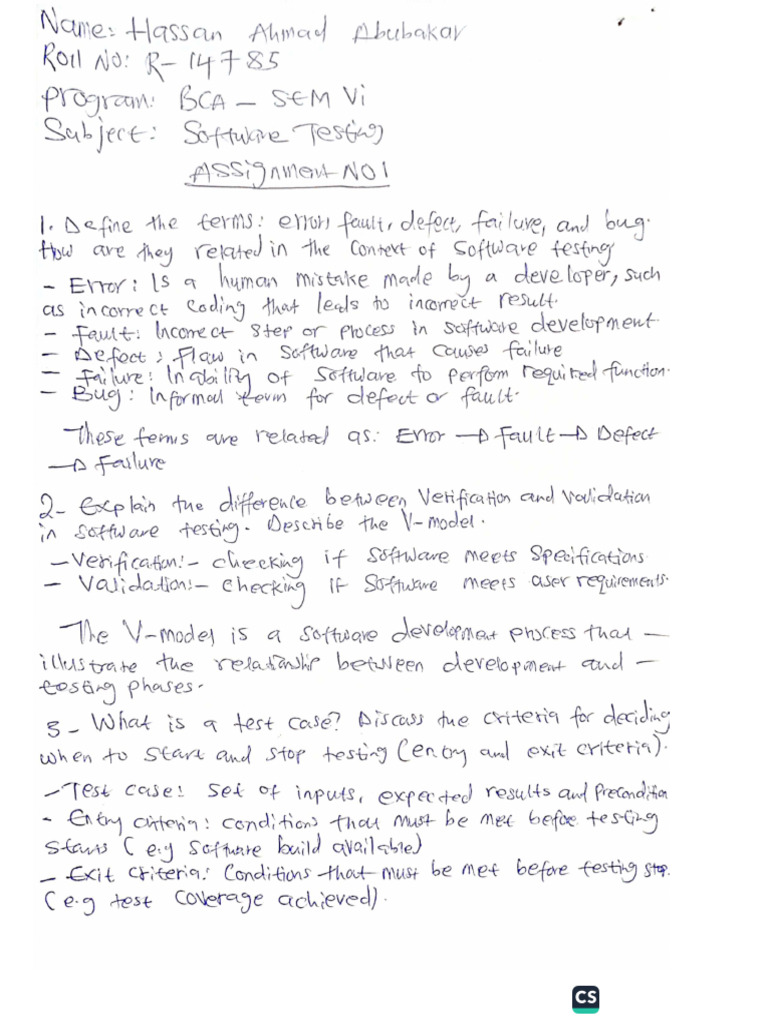 Name: Hassan Ahmad Abubakar
Roll No: R-14785
Program: BCA - SEM Vi
Subject: Software Testing
Assignment NO1
1. Define the terms: error, fault, defect, failure, and bug.
How are they related in the context of software testing
- Error: Is a human mistake made by a developer, such
as incorrect coding that leads to incorrect result.
- Fault: Incorrect Step or process in software development.
- Defect: Flaw in Software that causes failure
- Failure: Inability of Software to perform required function.
- Bug: Informal term for defect or fault.
These terms are related as: Error → Fault → Defect
→ Failure
2- Explain the difference between Verification and validation
in software testing. Describe the V-model.
- Verification:- checking if software meets Specifications
- Validation:- checking if Software meets user requirements.
The V-model is a software development process that -
illustrate the relationship between development and -
testing phases.
3- What is a test case? Discuss the criteria for deciding
when to start and stop testing (entry and exit criteria).
- Test case: Set of inputs, expected results and Precondition
- Entry criteria: conditions that must be met before testing
Starts (e.g Software build available)
- Exit criteria: Conditions that must be met before testing stop.
(e.g test coverage achieved).
CS